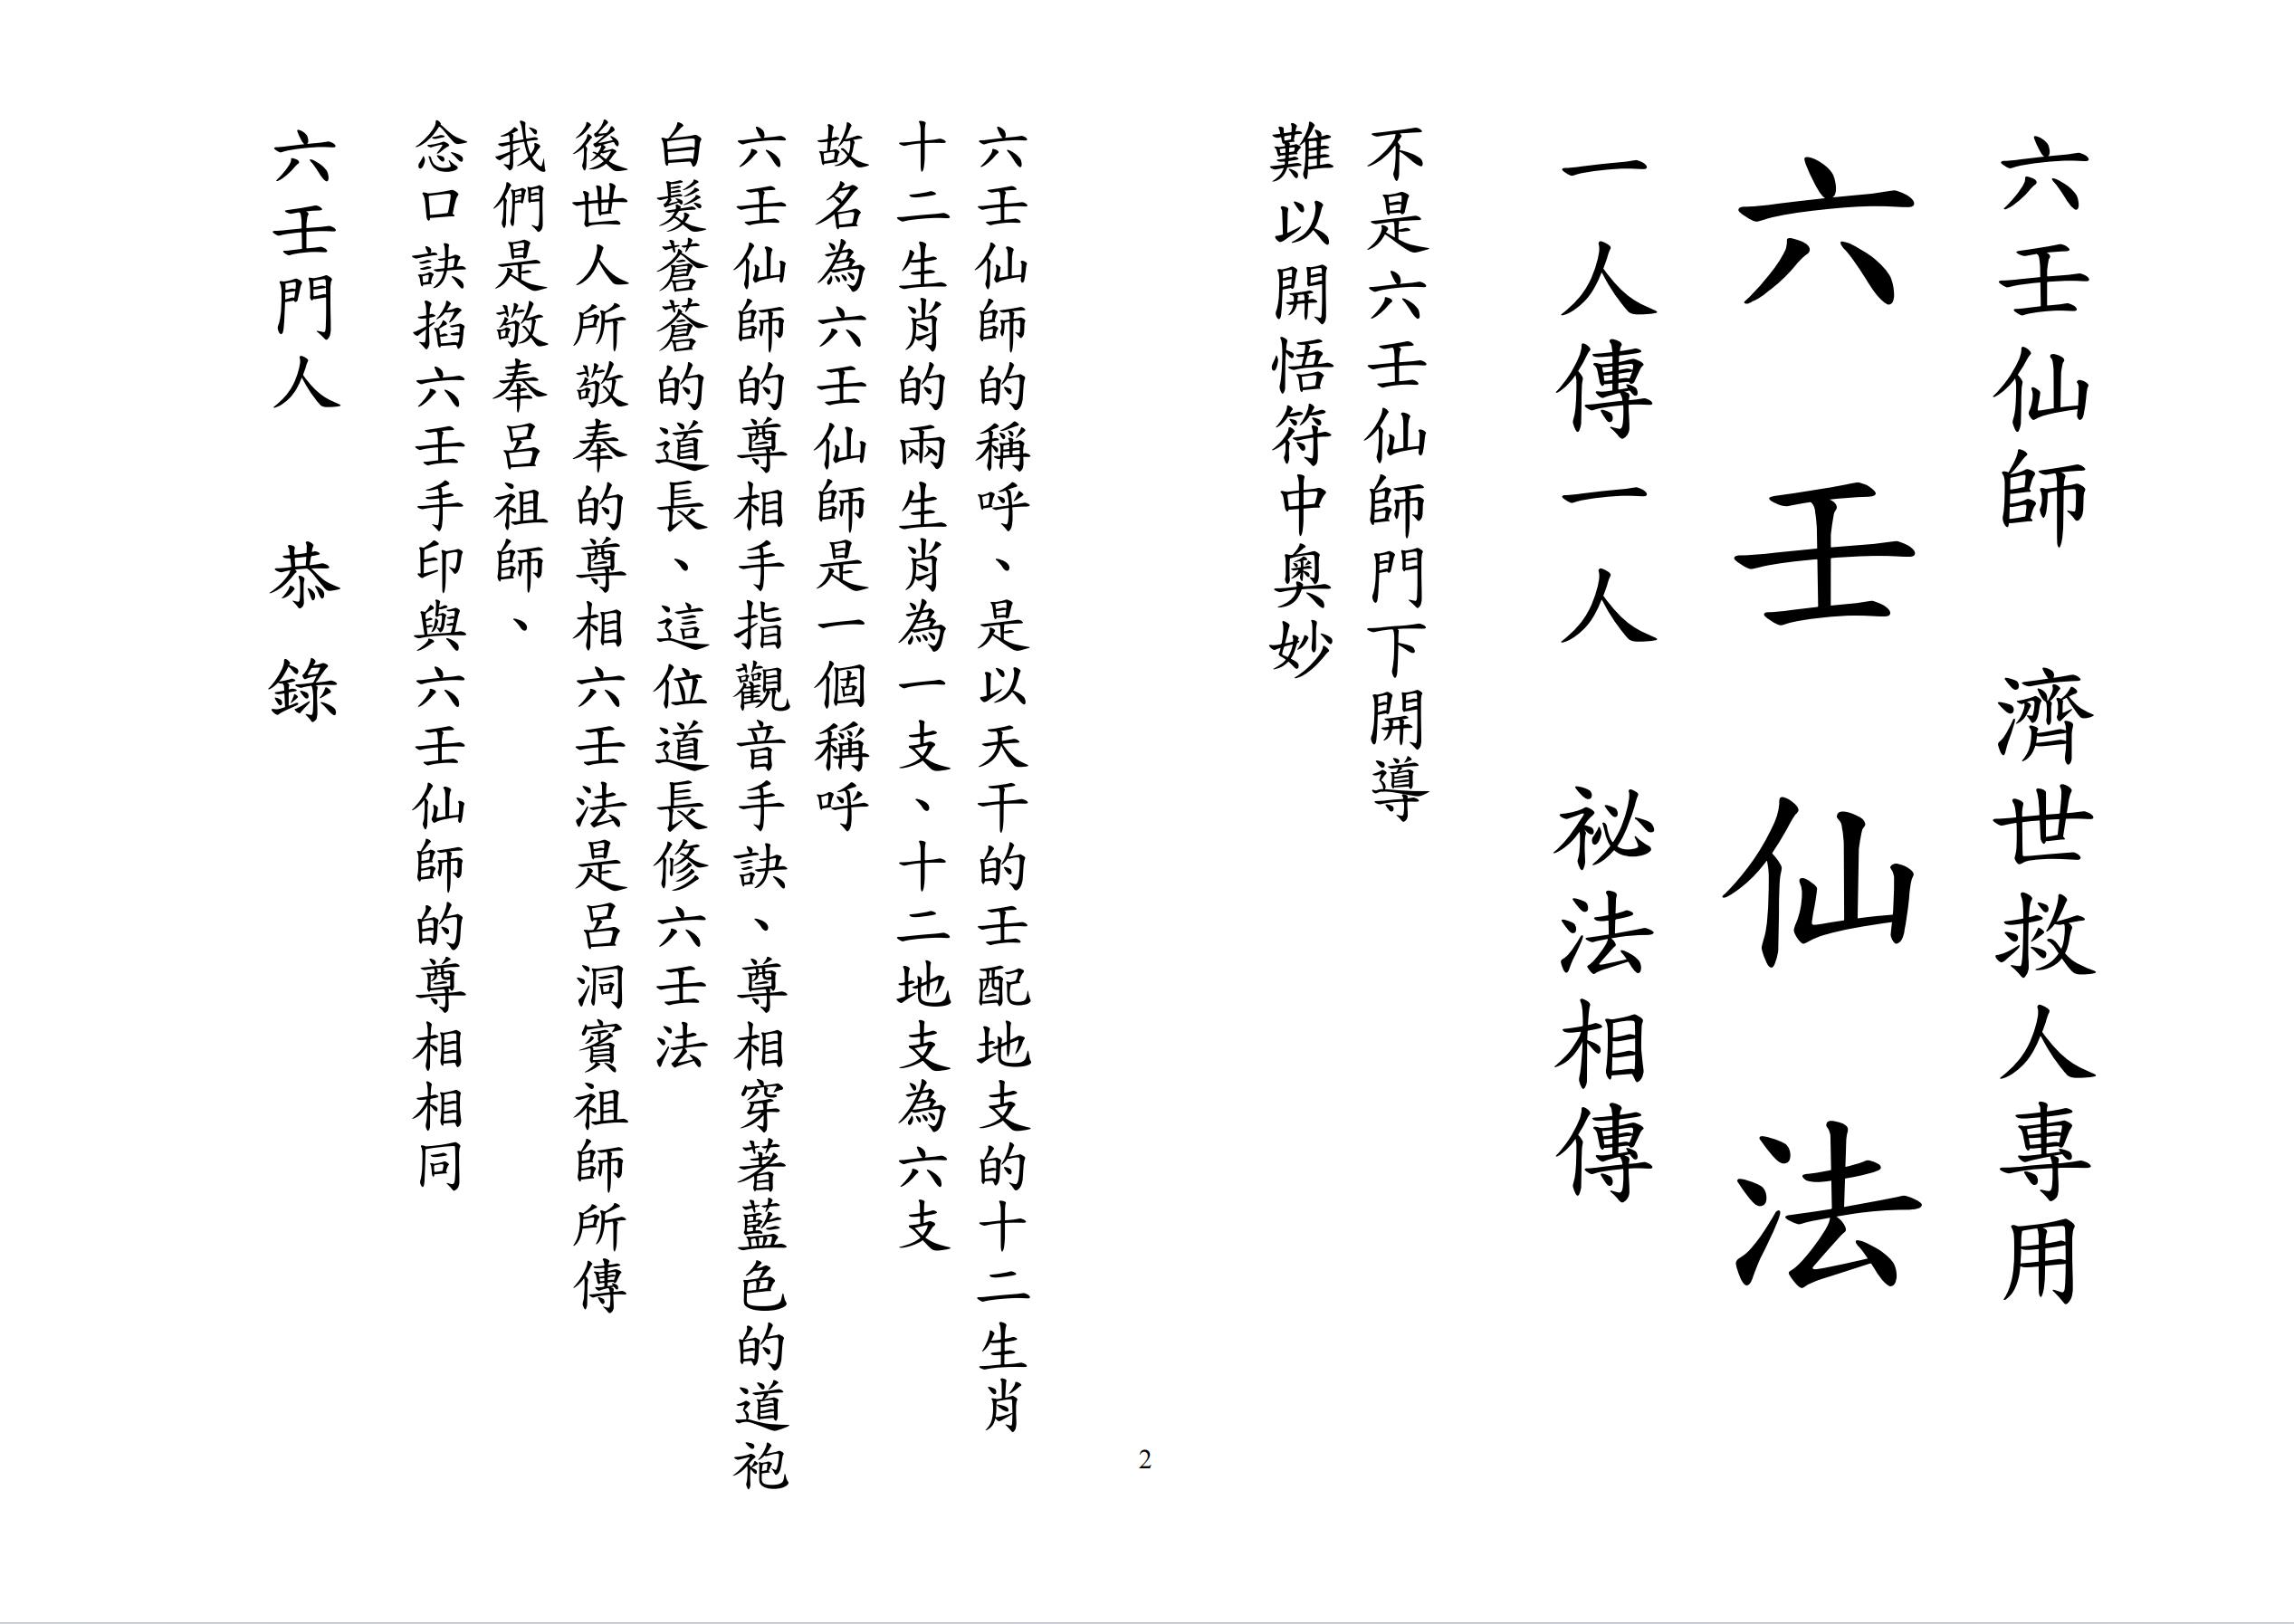 六壬仙師　濟世救人專用
六壬仙法
一人傳一人　祕法相傳
不是六壬仙師門下開導
難以開悟符中奧妙
六壬仙師的稱呼、是以天干的壬配地支的十二生肖
十二生肖的兩生肖為一支、十二地支為六支
故名為六壬仙師是一個稱呼
六壬仙師的尊相手指觀音手訣、尊相穿著藍色的道袍
白髮蒼蒼的道長、這位道長修六壬法
後世人所敬奉的尊相六壬法是呂洞賓祖師所傳
我們是敬奉呂祖師、
念口訣掐六壬手印與六壬仙師的尊相相同
六壬門人　恭錄
2